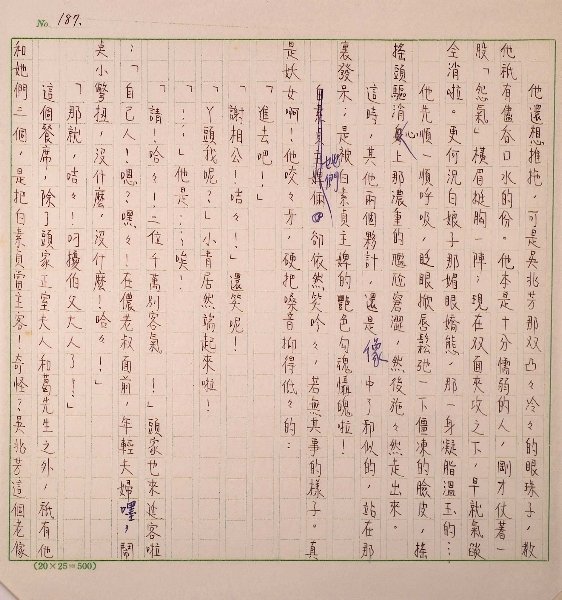 No. 187.
他還想推拖，可是吳兆芳那双凸々冷々的眼珠子，教
他祇有儘吞口水的份。他本是十分懦弱的人，剛才仗著一
股「怨氣」橫眉挺胸一陣；現在双面夾攻之下，早就氣燄
全消啦。更何況白娘子那媚眼嬌態，那一身凝脂溫玉的…
他先順一順呼吸，眨眼掀唇鬆弛一下僵凍的臉皮，搖
搖頭驅消心上那濃重的尷尬窘澀，然後施々然走出來。
這時，其他兩個夥計，還是像中了邪似的，站在那
裏發呆；是被白素貞主婢的艷色勾魂懾魄啦！
她們卻依然笑吟々，若無其事的樣子。真
是妖女啊！他咬々牙，硬把嗓音抑得低々的：
「進去吧！」
「謝相公！咭々！」還笑呢！
「丫頭我呢？」小青居然端起來啦！
「…：他是…：唉！
「請！哈々！三位千萬別客氣——！」頭家也來送客啦
：「自己人！嗯？嘿々！在儂老叔面前，年輕夫婦嘿，鬧
吳小彆扭，沒什麼，沒什麼！哈々！」
「那就，咭々！叨擾伯父大人了！」
這個餐席，除了頭家正室夫人和葛先生之外，祇有他
和她們三個，是把白素貞當主客！奇怪？吳兆芳這個老傢
(20×25=500)